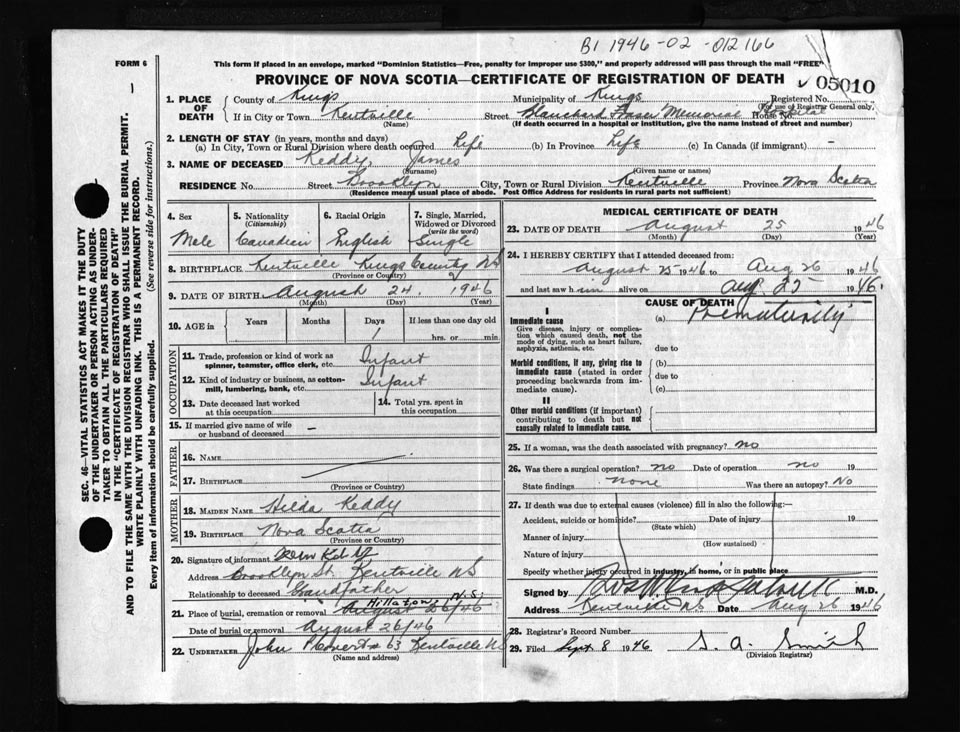 B1 1946-02-012166
FORM 6
This form if placed in an envelope, marked "Dominion Statistics—Free, penalty for improper use $300," and properly addressed will pass through the mail "FREE"
PROVINCE OF NOVA SCOTIA—CERTIFICATE OF REGISTRATION OF DEATH
05010
1
SEC. 46—VITAL STATISTICS ACT MAKES IT THE DUTY
OF THE UNDERTAKER OR PERSON ACTING AS UNDER-
TAKER TO OBTAIN ALL THE PARTICULARS REQUIRED
IN THE "CERTIFICATE OF REGISTRATION OF DEATH"
AND TO FILE THE SAME WITH THE DIVISION REGISTRAR WHO SHALL ISSUE THE BURIAL PERMIT.
WRITE PLAINLY WITH UNFADING INK. THIS IS A PERMANENT RECORD.
Every item of information should be carefully supplied. (See reverse side for instructions.)
1. PLACE OF DEATH
County of Kings Municipality of Kings Registered No.
(For use of Registrar General only.)
If in City or Town Kentville Street Blanchard Fraser Memorial Hospital House No.
(Name) (If death occurred in a hospital or institution, give the name instead of street and number)
2. LENGTH OF STAY (in years, months and days)
(a) In City, Town or Rural Division where death occurred Life (b) In Province Life (c) In Canada (if immigrant) -
3. NAME OF DECEASED Keddy James
(Surname) (Given name or names)
RESIDENCE No. Street Brooklyn City, Town or Rural Division Kentville Province Nova Scotia
(Residence means usual place of abode. Post Office Address for residents in rural parts not sufficient)
4. Sex 5. Nationality (Citizenship) 6. Racial Origin 7. Single, Married, Widowed or Divorced (write the word)
Male Canadian English Single
8. BIRTHPLACE Kentville Kings County NS
(Province or Country)
9. DATE OF BIRTH August 24 1946
(Month) (Day) (Year)
10. AGE in Years Months Days If less than one day old
hrs. or min.
OCCUPATION
11. Trade, profession or kind of work as spinner, teamster, office clerk, etc. Infant
12. Kind of industry or business, as cotton-mill, lumbering, bank, etc. Infant
13. Date deceased last worked at this occupation
14. Total yrs. spent in this occupation
15. If married give name of wife or husband of deceased -
FATHER
16. Name
17. Birthplace
(Province or Country)
MOTHER
18. Maiden Name Hilda Keddy
19. Birthplace Nova Scotia
(Province or Country)
20. Signature of informant
Address Brooklyn St. Kentville NS
Relationship to deceased Grandfather
21. Place of burial, cremation or removal Hillaton, N.S. August 26/46
Date of burial or removal August 26/46
22. UNDERTAKER John # 63 Kentville NS
(Name and address)
MEDICAL CERTIFICATE OF DEATH
23. DATE OF DEATH August 25 1946
(Month) (Day) (Year)
24. I HEREBY CERTIFY that I attended deceased from:
August 25 1946 to Aug 26 1946
and last saw him alive on Aug. 25 1946.
CAUSE OF DEATH
I
Immediate cause (a) Prematurity
Give disease, injury or complication which caused death, not the mode of dying, such as heart failure, asphyxia, asthenia, etc.
due to
Morbid conditions, if any, giving rise to immediate cause (stated in order proceeding backwards from immediate cause)
(b)
due to
(c)
II
Other morbid conditions (if important) contributing to death but not causally related to immediate cause.
25. If a woman, was the death associated with pregnancy? no
26. Was there a surgical operation? no Date of operation no 19
State findings none Was there an autopsy? No
27. If death was due to external causes (violence) fill in also the following:—
Accident, suicide or homicide? Date of injury 19
(State which)
Manner of injury
(How sustained)
Nature of injury
Specify whether injury occurred in industry, in home, or in public place
Signed by M.D.
Address Kentville NS Date Aug 26 1946
28. Registrar's Record Number
29. Filed Sept 8 1946 S. A. Smith
(Division Registrar)